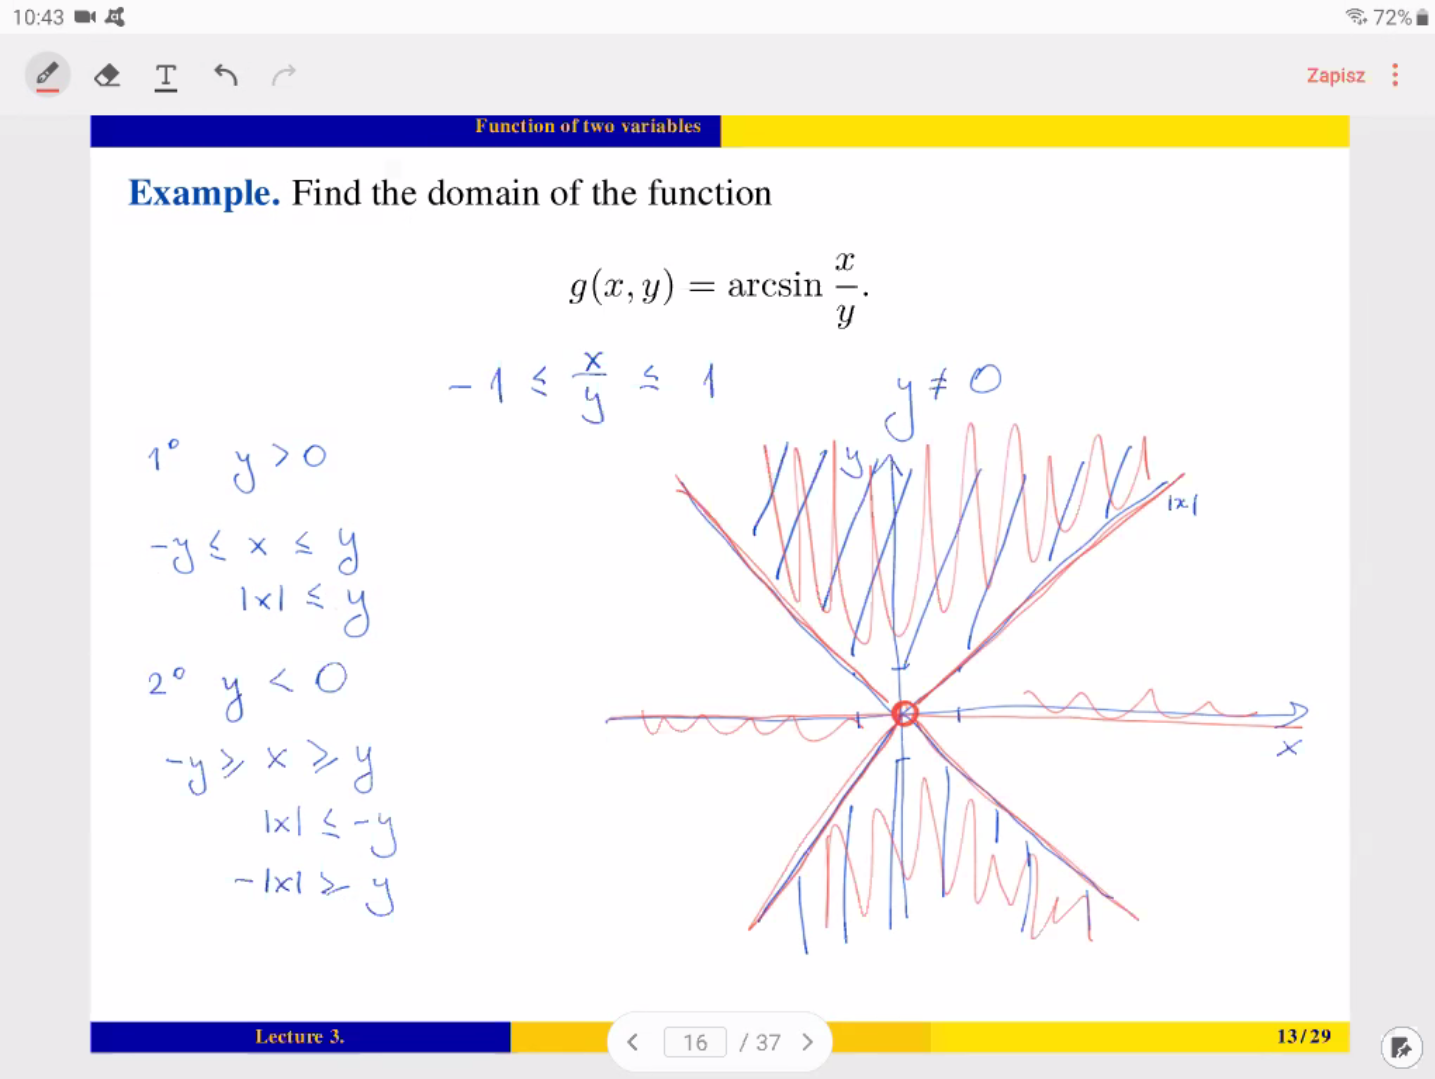 10:43
72%
T
Zapisz
Function of two variables
Example. Find the domain of the function
g(x, y) = arcsin x/y.
-1 ≤ x/y ≤ 1
y ≠ 0
1° y > 0
y
|x|
-y ≤ x ≤ y
|x| ≤ y
2° y < 0
x
-y ≥ x ≥ y
|x| ≤ -y
-|x| ≥ y
Lecture 3.
16 / 37
13/29